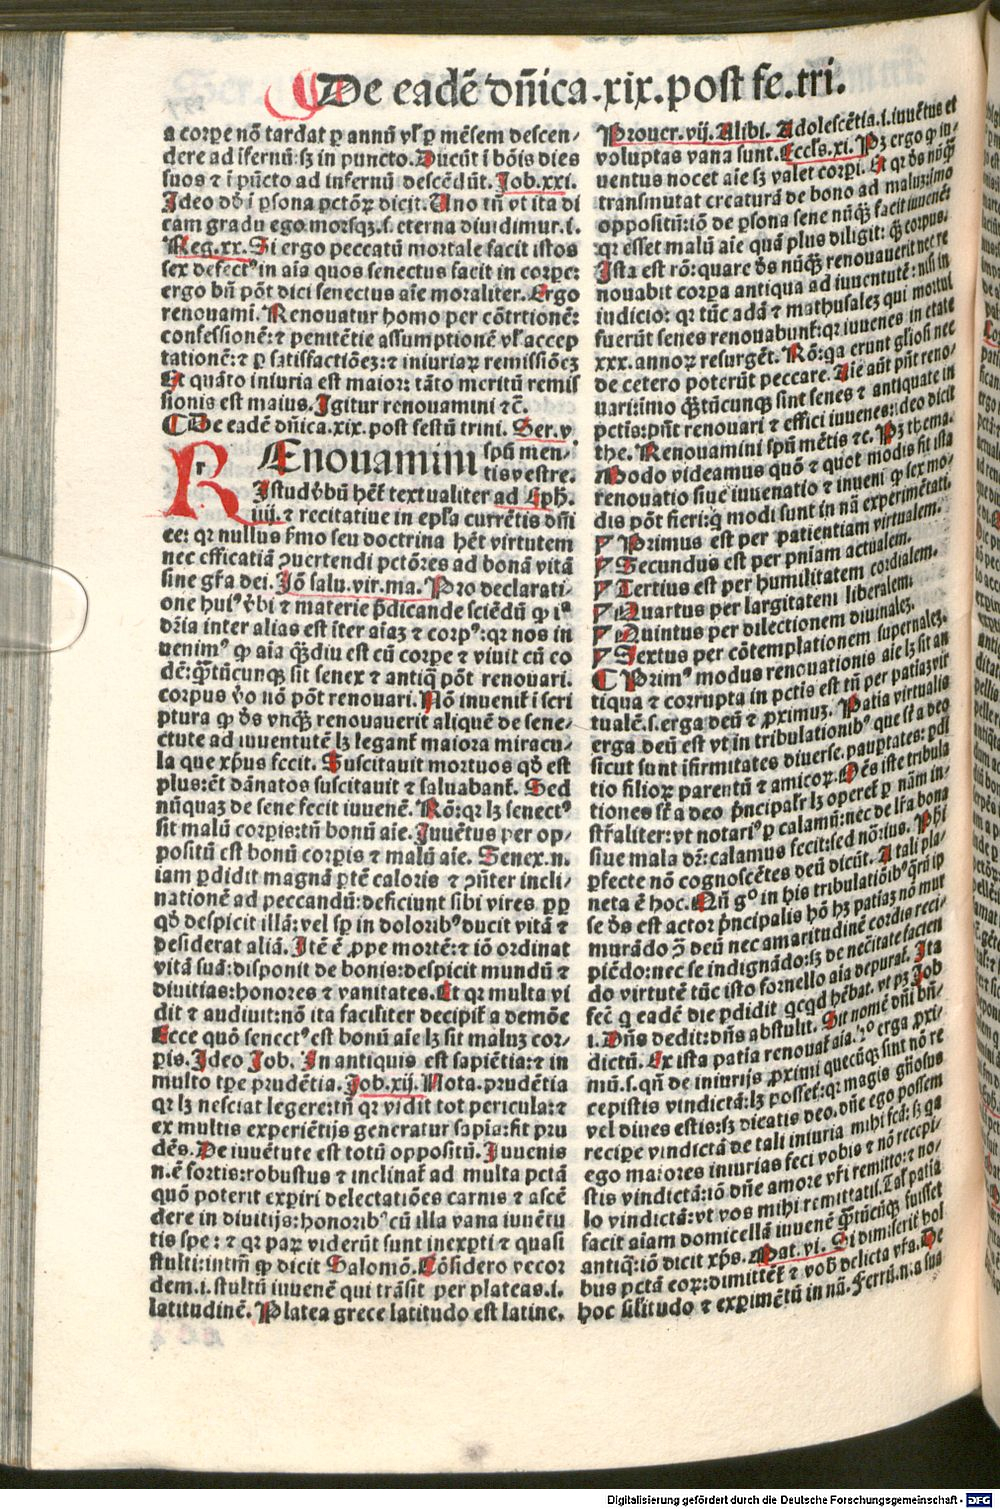 De eadē dñica.xix.post fe.tri.
a corpe nō tardat ꝑ annū vl' ꝑ mēsem descen⸗
dere ad īfernū: sꝫ in puncto. Ducūt ī bōis dies
suos ⁊ ī pūcto ad infernū descēdūt. Job.xxi.
Ideo dð ī ꝑsona pctōꝝ dicit. Uno tm̄ vt ita di
cam gradu ego morsqꝫ.i. eterna diuidimur.i.
Reg.xx. Si ergo peccatū mortale facit istos
sex defectꝰ in aīa quos senectus facit in corpe:
ergo bn̄ pōt dici senectus aīe moraliter. Ergo
renouami. Renouatur homo per cōtrtionē:
confessionē: ⁊ penitētie assumptionē vl' accep
tationē: ⁊ ꝑ satisfactiōeꝫ: ⁊ iniuriaꝝ remissiōeꝫ
Et quāto iniuria est maior: tāto meritū remis
sionis est maius. Igitur renouamini ⁊c̄.
De eadē dñica.xix.post festū trini. Ser.v.
r
REnouamini spū men⸗
tis vestre.
Istud ꝟbū hēt textualiter ad Eph.
iiij. ⁊ recitatiue in epl'a currētis dñi
ce: qꝛ nullus ẜmo seu doctrina hēt virtutem
nec efficatiā ꝯuertendi pctōres ad bonā vitā
sine gr̄a dei. Jō salu.vir.ma. Pro declarati⸗
one huiꝰ ꝟbi ⁊ materie p̄dicande sciēdū ꝙ ıª
dr̄ia inter alias est īter aīaꝫ ⁊ corpꝰ: qꝛ nos in
uenimꝰ ꝙ aīa qͣdiu est cū corpe ⁊ viuit cū eo
dē: qͣtūcunqꝫ sit senex ⁊ antiq̄ pōt renouari.
corpus ꝟo nō pōt renouari. Nō inuenit̄ ī scri
ptura ꝙ dꝰs vnqͣ renouauerit aliquē de sene⸗
ctute ad iuuentutē lꝫ legant̄ maiora miracu⸗
la que xp̄us fecit. Suscitauit mortuos qð est
plus: ēt dānatos suscitauit ⁊ saluabant̄. Sed
nūquaꝫ de sene fecit iuuenē. Rō: qꝛ lꝫ senectꝰ
sit malū corpis: tn̄ bonū aīe. Juuētus per op⸗
positū est bonū corpis ⁊ malū aīe. Senex.n.
iam ꝑdidit magnā ꝑtē caloris ⁊ ꝯn̄ter incli⸗
nationē ad peccandū: deficiunt sibi vires. ꝓp
qð despicit illā: vel sꝑ in doloribꝰ ducit vitā ⁊
desiderat aliā. Itē ē ꝓpe mortē: ⁊ iō ordinat
vitā suā: disponit de bonis: despicit mundū ⁊
diuitias: honores ⁊ vanitates. Et qꝛ multa vi
dit ⁊ audiuit: nō ita faciliter decipit̄ a demōe
Ecce quō senectꝰ est bonū aīe lꝫ sit maluꝫ cor⸗
pis. Ideo Job. In antiquis est sapiētia: ⁊ in
multo tꝑe prudētia. Job.xij. Nota. prudētia
qꝛ lꝫ nesciat legere: tn̄ qꝛ vidit tot pericula: ⁊
ex multis experiētijs generatur sapīa: fit pru
dēs. De iuuētute est totū oppositū. Juuenis
n.ē fortis: robustus ⁊ inclinat̄ ad multa pctā
quō poterit exꝑiri delectatiōes carnis ⁊ ascē
dere in diuitijs: honoribꝰ cū illa vana iuuētu
tis spe: ⁊ qꝛ paꝝ viderūt sunt inexpti ⁊ quasi
stulti: intm̄ ꝙ dicit Salomō. Cōsidero vecor
dem.i. stultū iuuenē qui trāsit per plateas.i.
latitudinē. Platea grece latitudo est latine.
Prouer.vij. Alibi. Adolescētia.i. iuuētus et
voluptas vana sunt. Eccl's.xi. Pꝫ ergo ꝙ iu⸗
uentus nocet aīe sꝫ valet corpi. Et qꝛ dꝰs nūqͣ
transmutat creaturā de bono ad maluꝫ: imo
oppositū: iō de ꝑsona sene nūqͣ facit iuuenē
qꝛ esset malū aīe quā plus diligit: qͣ corpus.
Ista est rō: quare dꝰs nūqͣ renouauerit nec re
nouabit corpa antiqua ad iuuentutē: nisi in
iudicio: qꝛ tūc adā ⁊ mathusaleꝫ qui mortui
fuerūt senes renouabunt̄: qꝛ iuuenes in etate
xxx. annoꝝ resurgēt. Rō: qa erunt gl'iosi nec
de cetero poterūt peccare. Aīe aūt pn̄t reno⸗
uari: imo qͣtūcunqꝫ sint senes ⁊ antiquate in
pctīs: pn̄t renouari ⁊ effici iuuenes: ideo dicit
the. Renouamini spū mētis ⁊c. Pꝫ thema.
Modo videamus quō ⁊ quot modis fit ista
renouatio siue iuuenatio ⁊ inueni ꝙ sex mo⸗
dis pōt fieri: q̄ modi sunt in nā experimētati.
Primus est per patientiam virtualem.
Secundus est per pn̄iam actualem.
Tertius est per humilitatem cordialem.
Quartus per largitatem liberalem.
Quintus per dilectionem diuinaleꝫ.
Sextus per cōtemplationem supernaleꝫ.
Primꝰ modus renouationis aīe lꝫ sit an
tiqua ⁊ corrupta in pctīs est tū per patiaꝫ vir
tualē.s. erga deū ⁊ ꝓximuꝫ. Patīa virtualis
erga deū est vt in tribulationibꝰ que fīt a deo
sicut sunt īfirmitates diuerse. paupꝑtates: ꝑdi
tio filioꝝ parentū ⁊ amicoꝝ. Oēs iste tribula
tiones fīt a deo p̄ncipalr̄ lꝫ operet̄ ꝑ nām in⸗
str̄aliter: vt notariꝰ ꝑ calamū: nec de lr̄a bona
siue mala dr̄: calamus fecit: sed nō:ius. Ph̄i
ꝑfecte nō cognoscētes deū dicūt. A tali pla⸗
neta ē hoc. Qn̄ g° in his tribulatiōibꝰ qͣrū ip
se dꝰs est actor p̄ncipalis hō hꝫ patiaꝫ nō mur
murādo ꝯ deū nec amaritudinē cordis reci⸗
piēdo: nec se indignādo: sꝫ de necitate facien
do virtutē tūc isto fornello aīa depurat̄. Ita
fec̄ q̄ eadē die ꝑdidit qcqd hēbat. vt pꝫ Job
i. Dn̄s dedit: dn̄s abstulit. Sit nomē dn̄i bn̄⸗
dictū. Ex ista patīa renouat̄ aīa. 2° erga ꝓxi⸗
mū.s. qn̄ de iniurijs ꝓximi quecūqꝫ sint nō re
cepistis vindictā: lꝫ possetꝭ: qꝛ magis gn̄osus
vel diues estis: sꝫ dicatis deo. dn̄e ego possem
recipe vindictā de tali iniuria mihi fcā: sꝫ qa
ego maiores iniurias feci vobis ⁊ nō recepi⸗
stis vindictā: iō dn̄e amore vr̄i remitto: ⁊ no⸗
lo vindictā: vt vos mihi remittatis. Talꝭ patīa
facit aīam domicellā iuuenē qͣtūcūqꝫ fuisset
antiq̄: iō dicit xp̄s. Mat.vi. Si dimiserit hoī
bus pctā eoꝝ: dimittet̄ ⁊ vob̄ delicta vr̄a. De
hoc sil'itudo ⁊ experimētū in nā. Ferrū.n. a sua
Digitalisierung gefördert durch die Deutsche Forschungsgemeinschaft - DFG